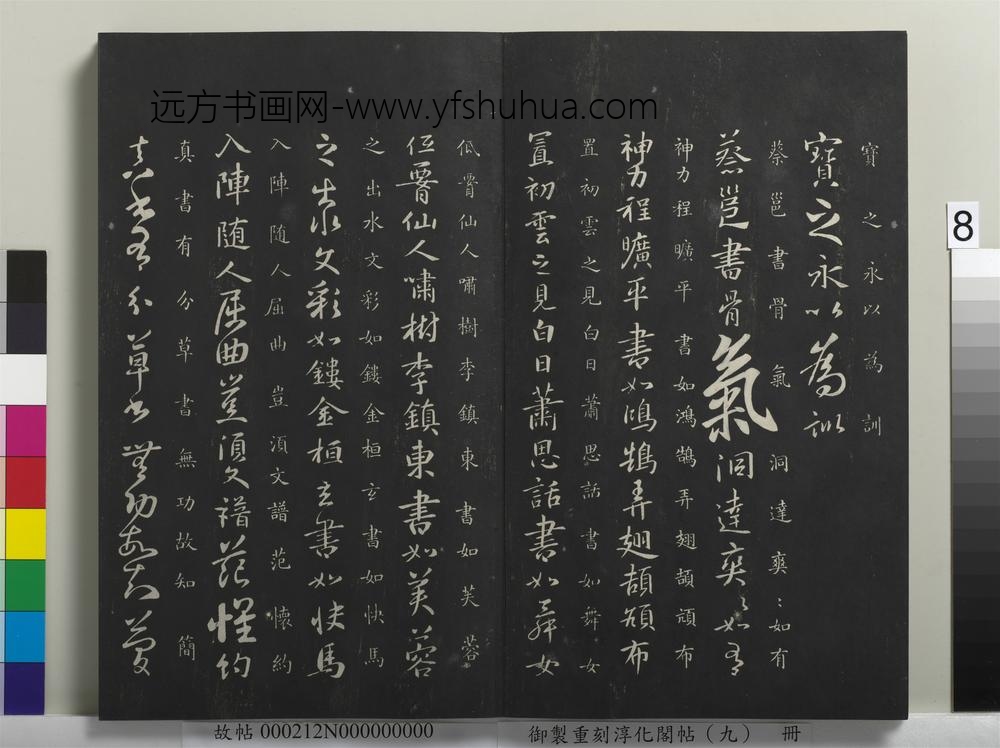 远方书画网-www.yfshuhua.com
寶之永以為訓
寶之永以為訓
蔡邕書骨氣洞達爽:如有
蔡邕書骨氣洞達爽〻如有
神力程曠平書如鴻鵠弄翅頡頏布
神力程曠平書如鴻鵠弄翅頡頏布
置初雲之見白日蕭思話書如舞女
置初雲之見白日蕭思話書如舞女
低仙人嘯樹李鎮東書如芙蓉
低仙人嘯樹李鎮東書如芙蓉
之出水文彩如鏤金桓玄書如快馬
之出水文彩如鏤金桓玄書如快馬
入陣随人屈曲豈湏文譜范懷約
入陣随人屈曲豈湏文譜范懷約
真書有分草書無功故知簡
真書有分草書無功故知簡
8
故帖 000212N000000000
御製重刻淳化閣帖(九) 冊